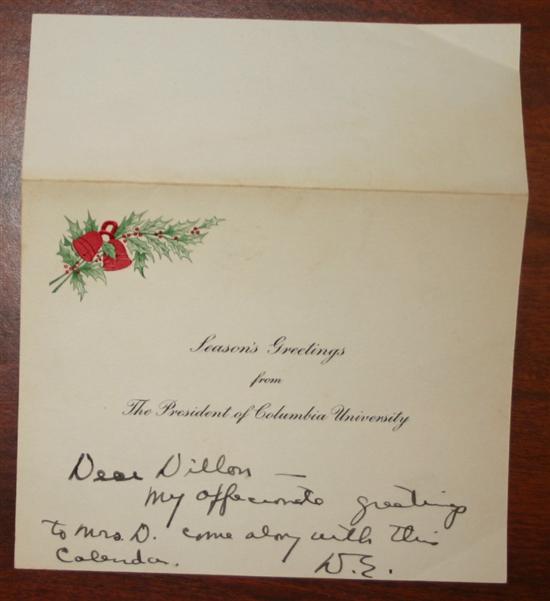 Season's Greetings
from
The President of Columbia University
Dear Dillon —
my affectionate greetings
to Mrs. D. come along with this
Calendar.
D.E.